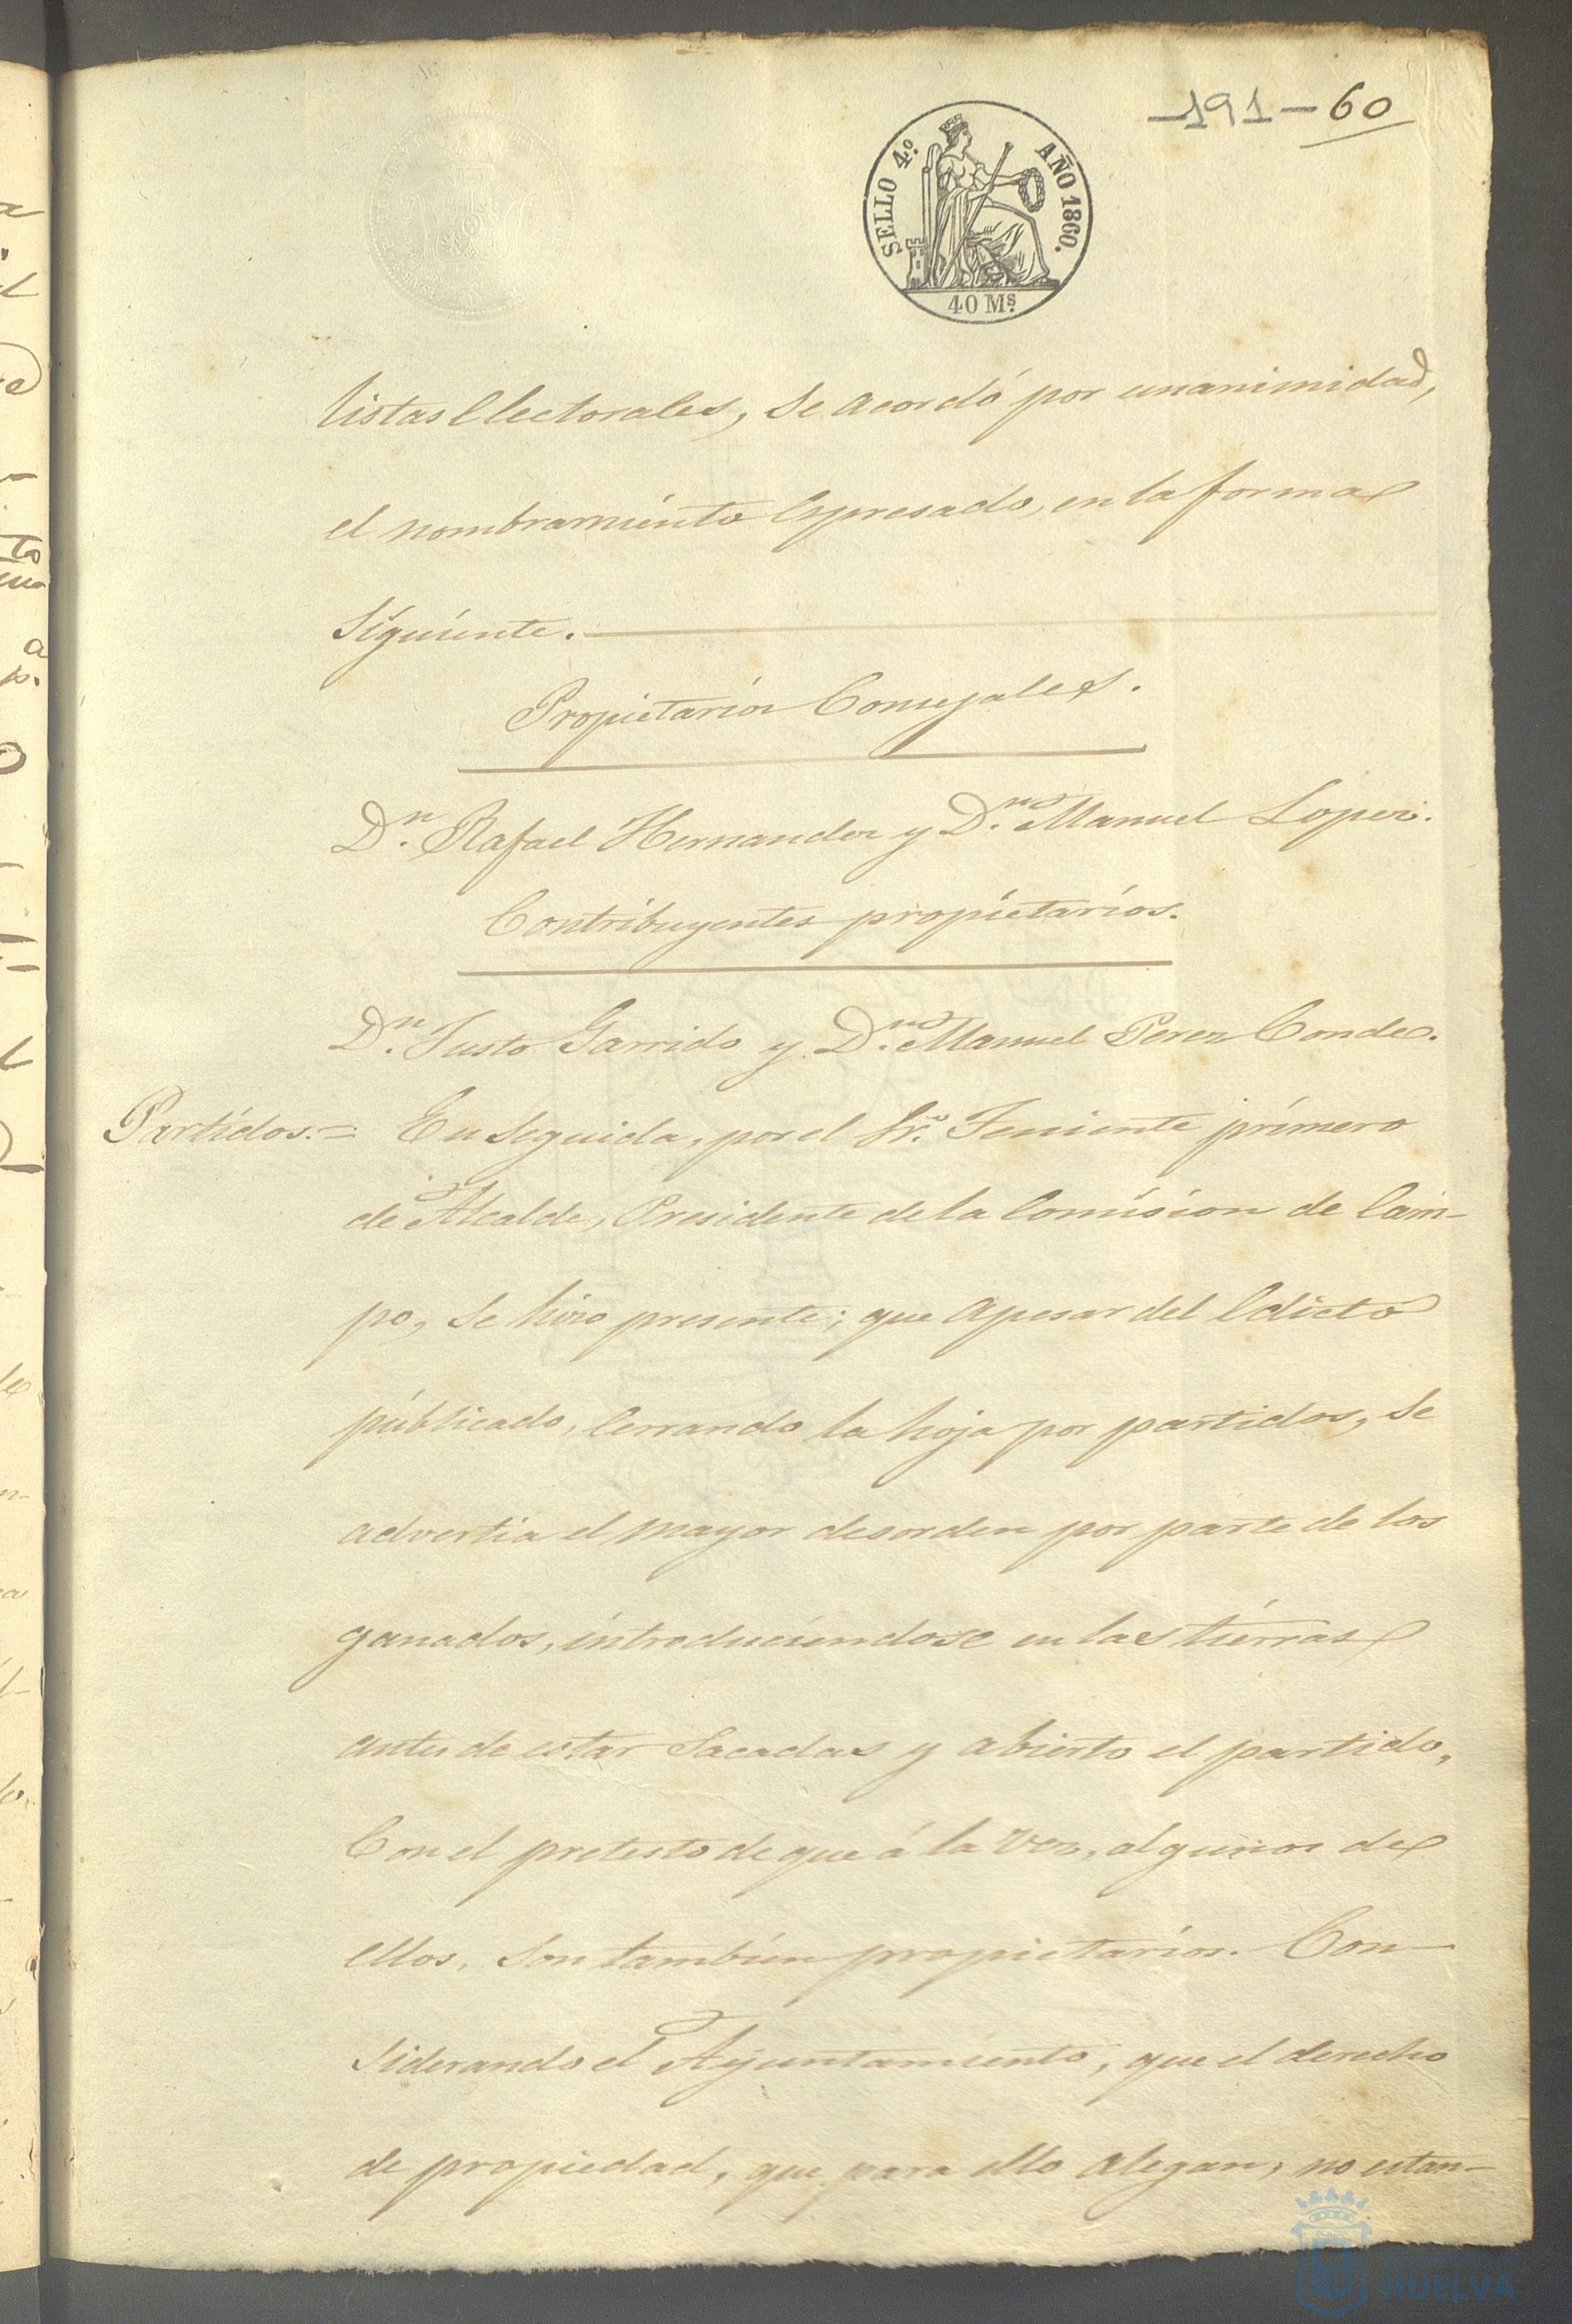 191-60
SELLO 4º. AÑO 1860.
40 Mˢ.
listas Electorales, se acordó por unanimidad,
el nombramiento Espresado, en la forma
siguiente.
Propietarios Consejales.
Dⁿ. Rafael Hernandez y Dⁿ. Manuel Lopez.
Contribuyentes propietarios.
Dⁿ. Justo Garrido y Dⁿ. Manuel Perez Conde.
Partidos.= En seguida, por el Sr. Teniente primero
de Alcalde, Presidente de la Comision de Cam-
po, se hizo presente; que apesar del Edicto
públicado, Cerrando la hoja por partidos, se
advertia el mayor desorden por parte de los
ganados, introduciendose en las tierras
antes de estar Sacadas y abierto el partido,
Con el pretesto de que á la vez, algunos de
ellos, son tambien propietarios. Con-
siderando el Ayuntamiento, que el derecho
de propiedad, que para ello alegan, no estan-
HUELVA